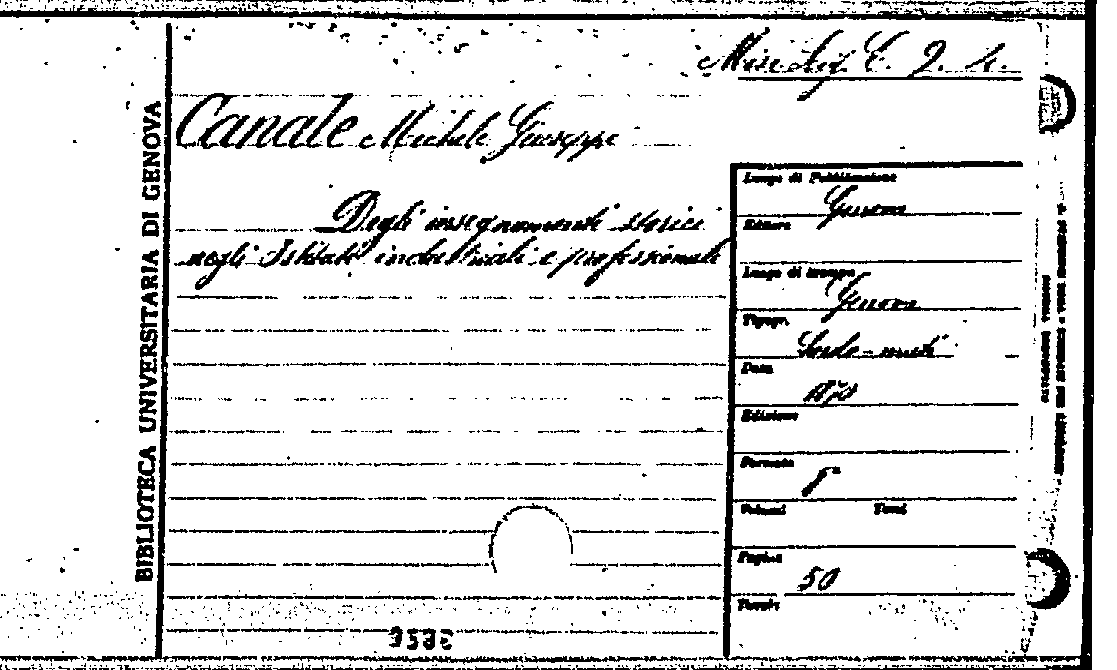 Misc. Lig. C. 2. 4.
BIBLIOTECA UNIVERSITARIA DI GENOVA
Canale Michele Giuseppe
Degli insegnamenti storici
negli Istituti industriali e professionali
Luogo di Pubblicazione
Genova
Editore
Luogo di stampa
Genova
Tipogr.
Sordo-muti
Data
1870
Edizione
Formato
8°
Volumi Tomi
Pagine
50
Tavole